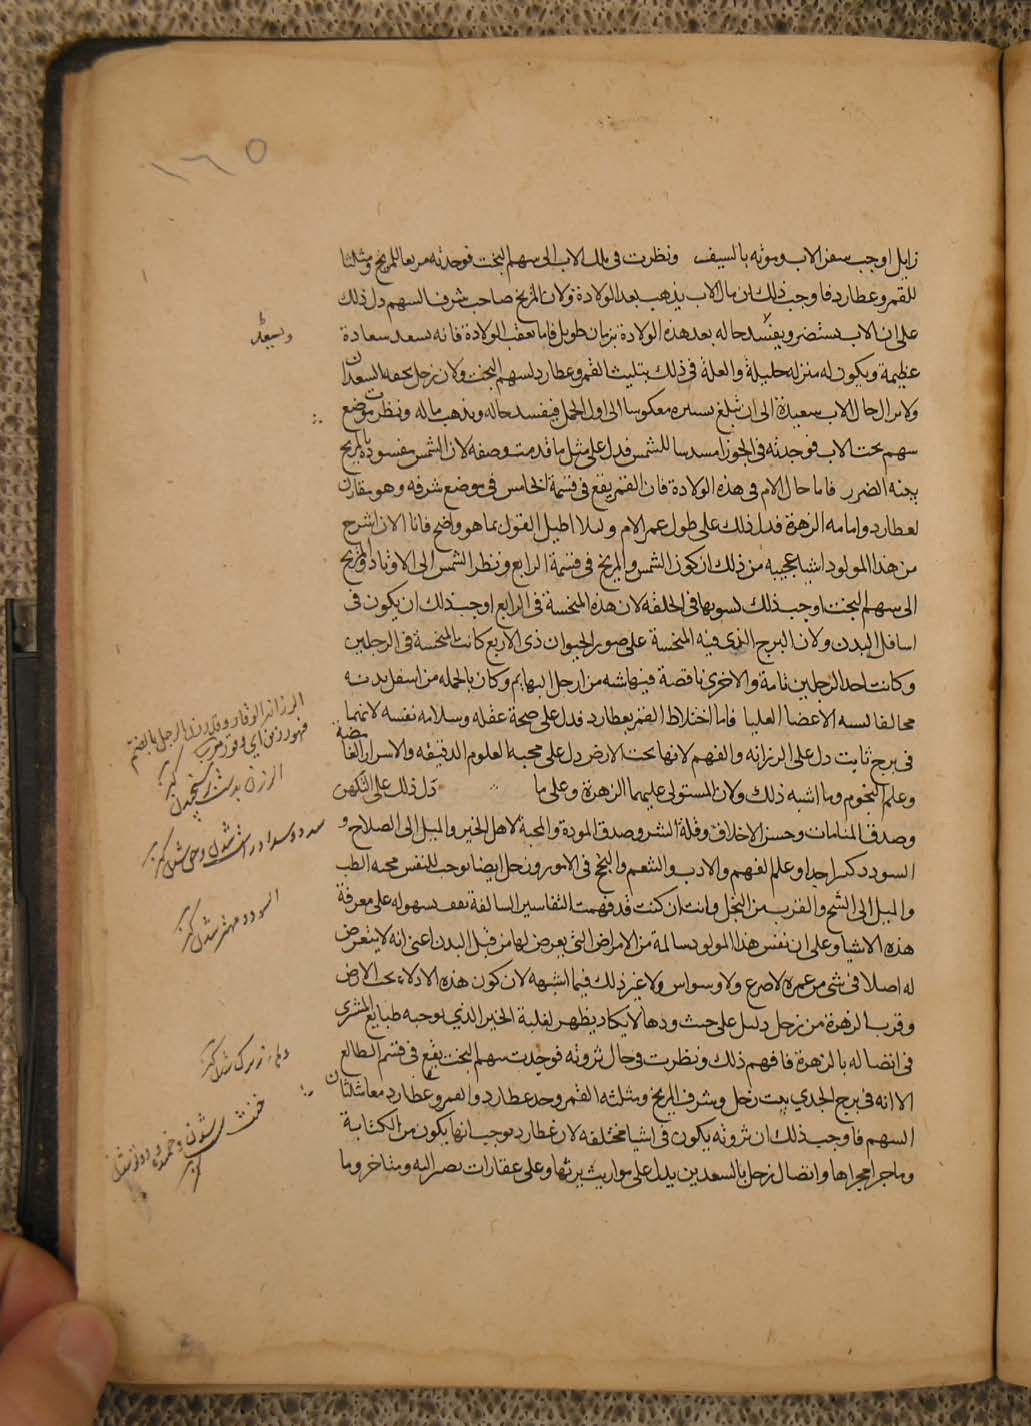 ١٦٥
زايل اوجب سفر الاب وموته بالسيف ونظرت في ملك الاب الى سهم البخت فوجدته مربعا للمريخ ومثلثا
للقمر وعطارد فاوجب ذلك ان مال الاب يذهب بعد الولادة ولان المريخ صاحب شرف السهم دل ذلك
على ان الاب يستضر ويفسد حاله بعد هذه الولادة بزمان طويل فاما بعقب الولادة فانه يسعد سعادة
عظيمة ويكون له منزلة جليلة والعلة في ذلك تثليث القمر وعطارد لسهم البخت ولان زحل يحفه السعدان
ولا يزال حال الاب سعيدة الى ان تبلغ تسيره معكوسا الى اول الحمل فيفسد حاله ويذهب ماله ونظرت موضع
سهم بخت الاب فوجدته في الجوزا مسدسا للشمس فدل على مثل ما قدمت وصفه لان الشمس مفسودة بالمريخ
بينة الضرر فاما حال الام في هذه الولادة فان القمر يقع في قسمة الخامس في موضع شرفه وهو مقارن
لعطارد وامامه الزهرة فدل ذلك على طول عمر الام وليلا اطيل القول بما هو واضح فانا الان اشرح
من هذا المولود اشيا عجيبه من ذلك ان كون الشمس والمريخ في قسمة الرابع ونظر الشمس الى الاوتاد والمريخ
الى سهم البخت اوجب ذلك تشويها في الخلقه لان هذه المنحسة في الرابع اوجب ذلك ان يكون في
اسافل البدن ولان البرج الذي فيه المنحسة على صور الحيوان ذي الاربع كانت المنحسة في الرجلين
وكانت احد الرجلين تامة والاخرى ناقصة فيها شبه من ارجل البهايم وكان بالجمله من اسفل بدنه
مخالفا لشبه الاعضا العليا فاما اختلاط القمر بعطارد فدل على صحة عقله وسلامه نفسه لانهما
في برج ثابت دل على الرزانه والفهم لانها تحت الارض دل على محبه العلوم الدقيقه والاسرار الغامضة
وعلم النجوم وما اشبه ذلك ولان المستولى عليهما الزهرة وعلى ما دل ذلك على التكهن
وصدق المنامات وحسن الاخلاق وقلة الشر وصدق المودة والمحبة لاهل الخير والميل الى الصلاح و
السودد كثيرا جدا وعلم الفهم والادب والشعر والنجح في الامور وزحل ايضا يوجب للنفس محبه الطب
والميل الى الشح والقرب من البخل وانت ان كنت قد فهمت التفاسير السالفة تقف بسهوله على معرفة
هذه الاشيا وعلى ان نفس هذا المولود سالمة من الامراض التي يعرض لها من قبل البدن اعني انه لا يتعرض
له اصلا في شي من عمره لا صرع ولا وسواس ولا غير ذلك فيما اشبهه لان كون هذه الادلاء تحت الارض
وقرب الزهرة من زحل دليل على خبث ودها لا يكاد يظهر لغلبة الخير الذي توجبه طبايع المشترى
في اتصاله بالزهرة فافهم ذلك ونظرت في حال ثروته فوجدت سهم البخت يقع في قسم الطالع
الا انه في برج الجدي بيت زحل وشرف المريخ ومثلثه القمر وحد عطارد والقمر وعطارد معا مثلثان
السهم فاوجب ذلك ان ثروته يكون في اشيا مختلفه لان عطارد يوجب انها يكون من الكتابة
وما جرا مجراها واتصال زحل بالسعدين يدل على مواريث يرثها وعلى عقارات تصر اليه ومتاخر وما
ويسعد